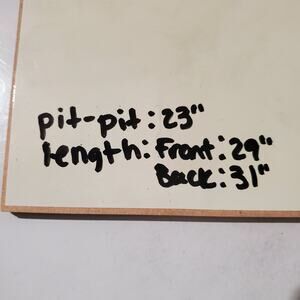 pit-pit: 23"
length: Front: 29"
Back: 31"